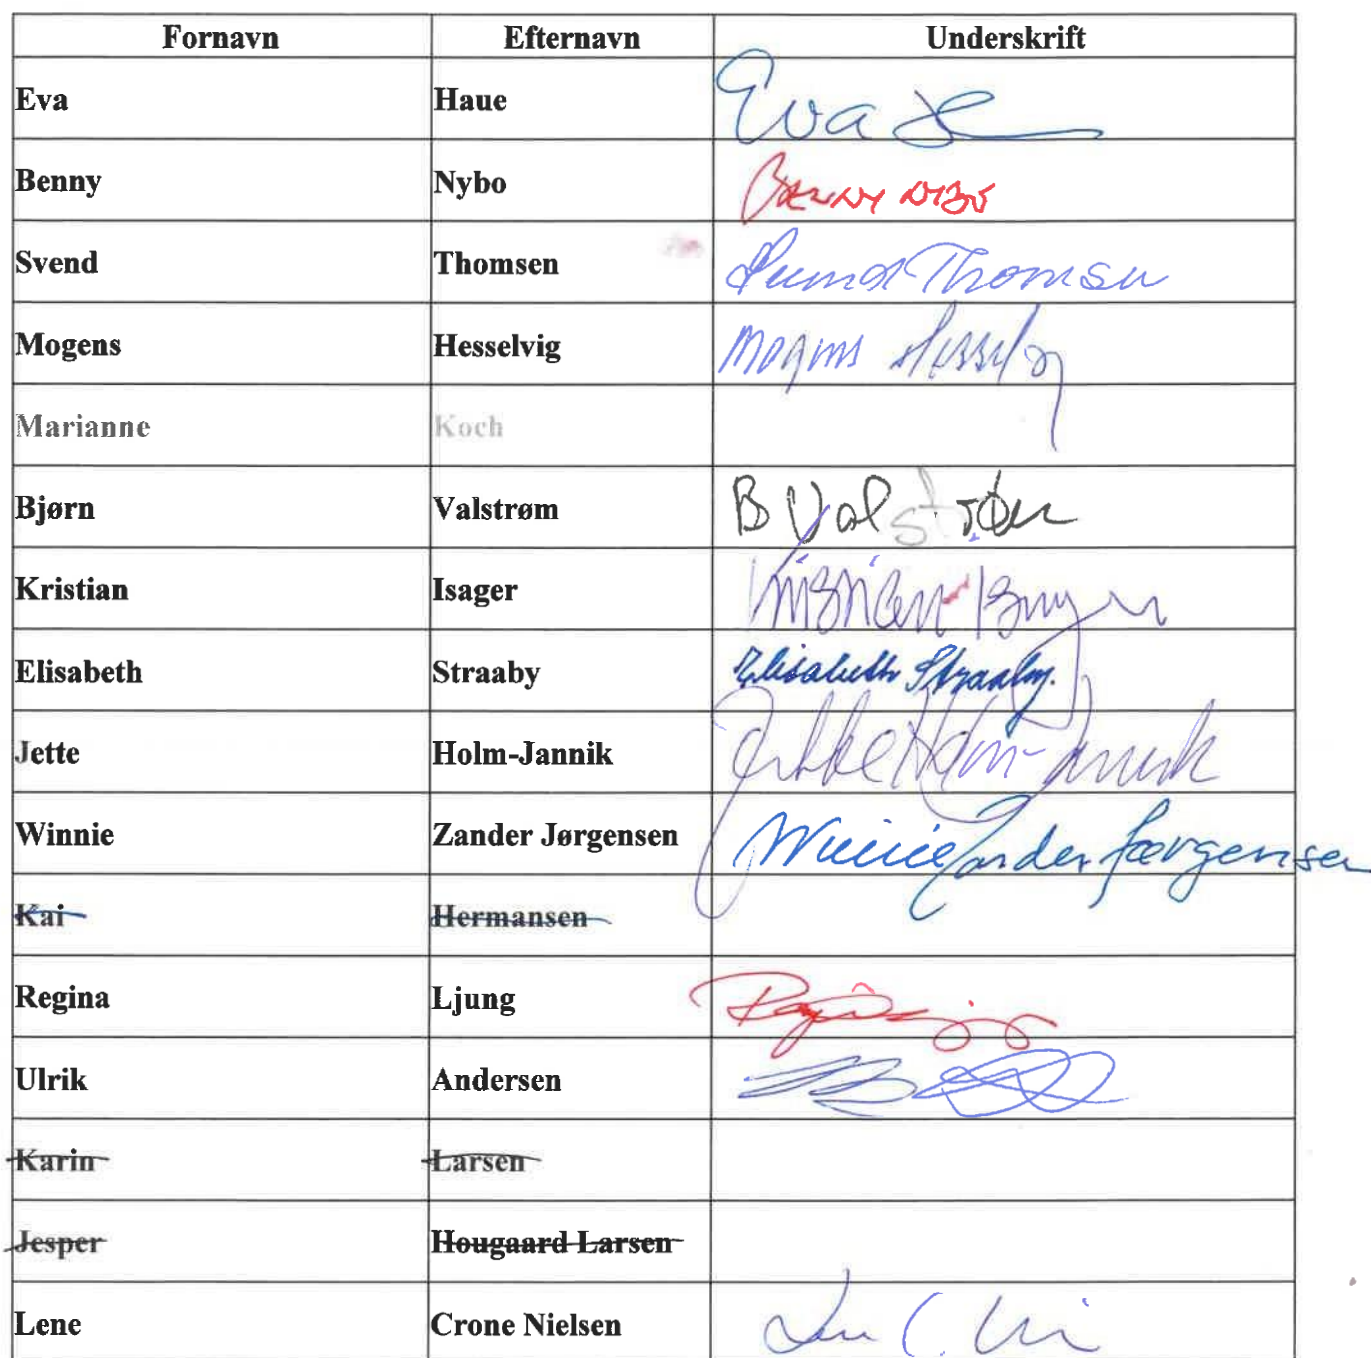 Fornavn Efternavn Underskrift
Eva Haue Eva
Benny Nybo Benny Nybo
Svend Thomsen Svend Thomsen
Mogens Hesselvig Mogens Hesselvig
Marianne Koch
Bjørn Valstrøm B Valstrøm
Kristian Isager Kristian
Elisabeth Straaby Elisabeth Straaby.
Jette Holm-Jannik Jette Holm-Jannik
Winnie Zander Jørgensen Winnie Zander Jørgensen
Kai Hermansen
Regina Ljung
Ulrik Andersen
Karin Larsen
Jesper Hougaard Larsen
Lene Crone Nielsen